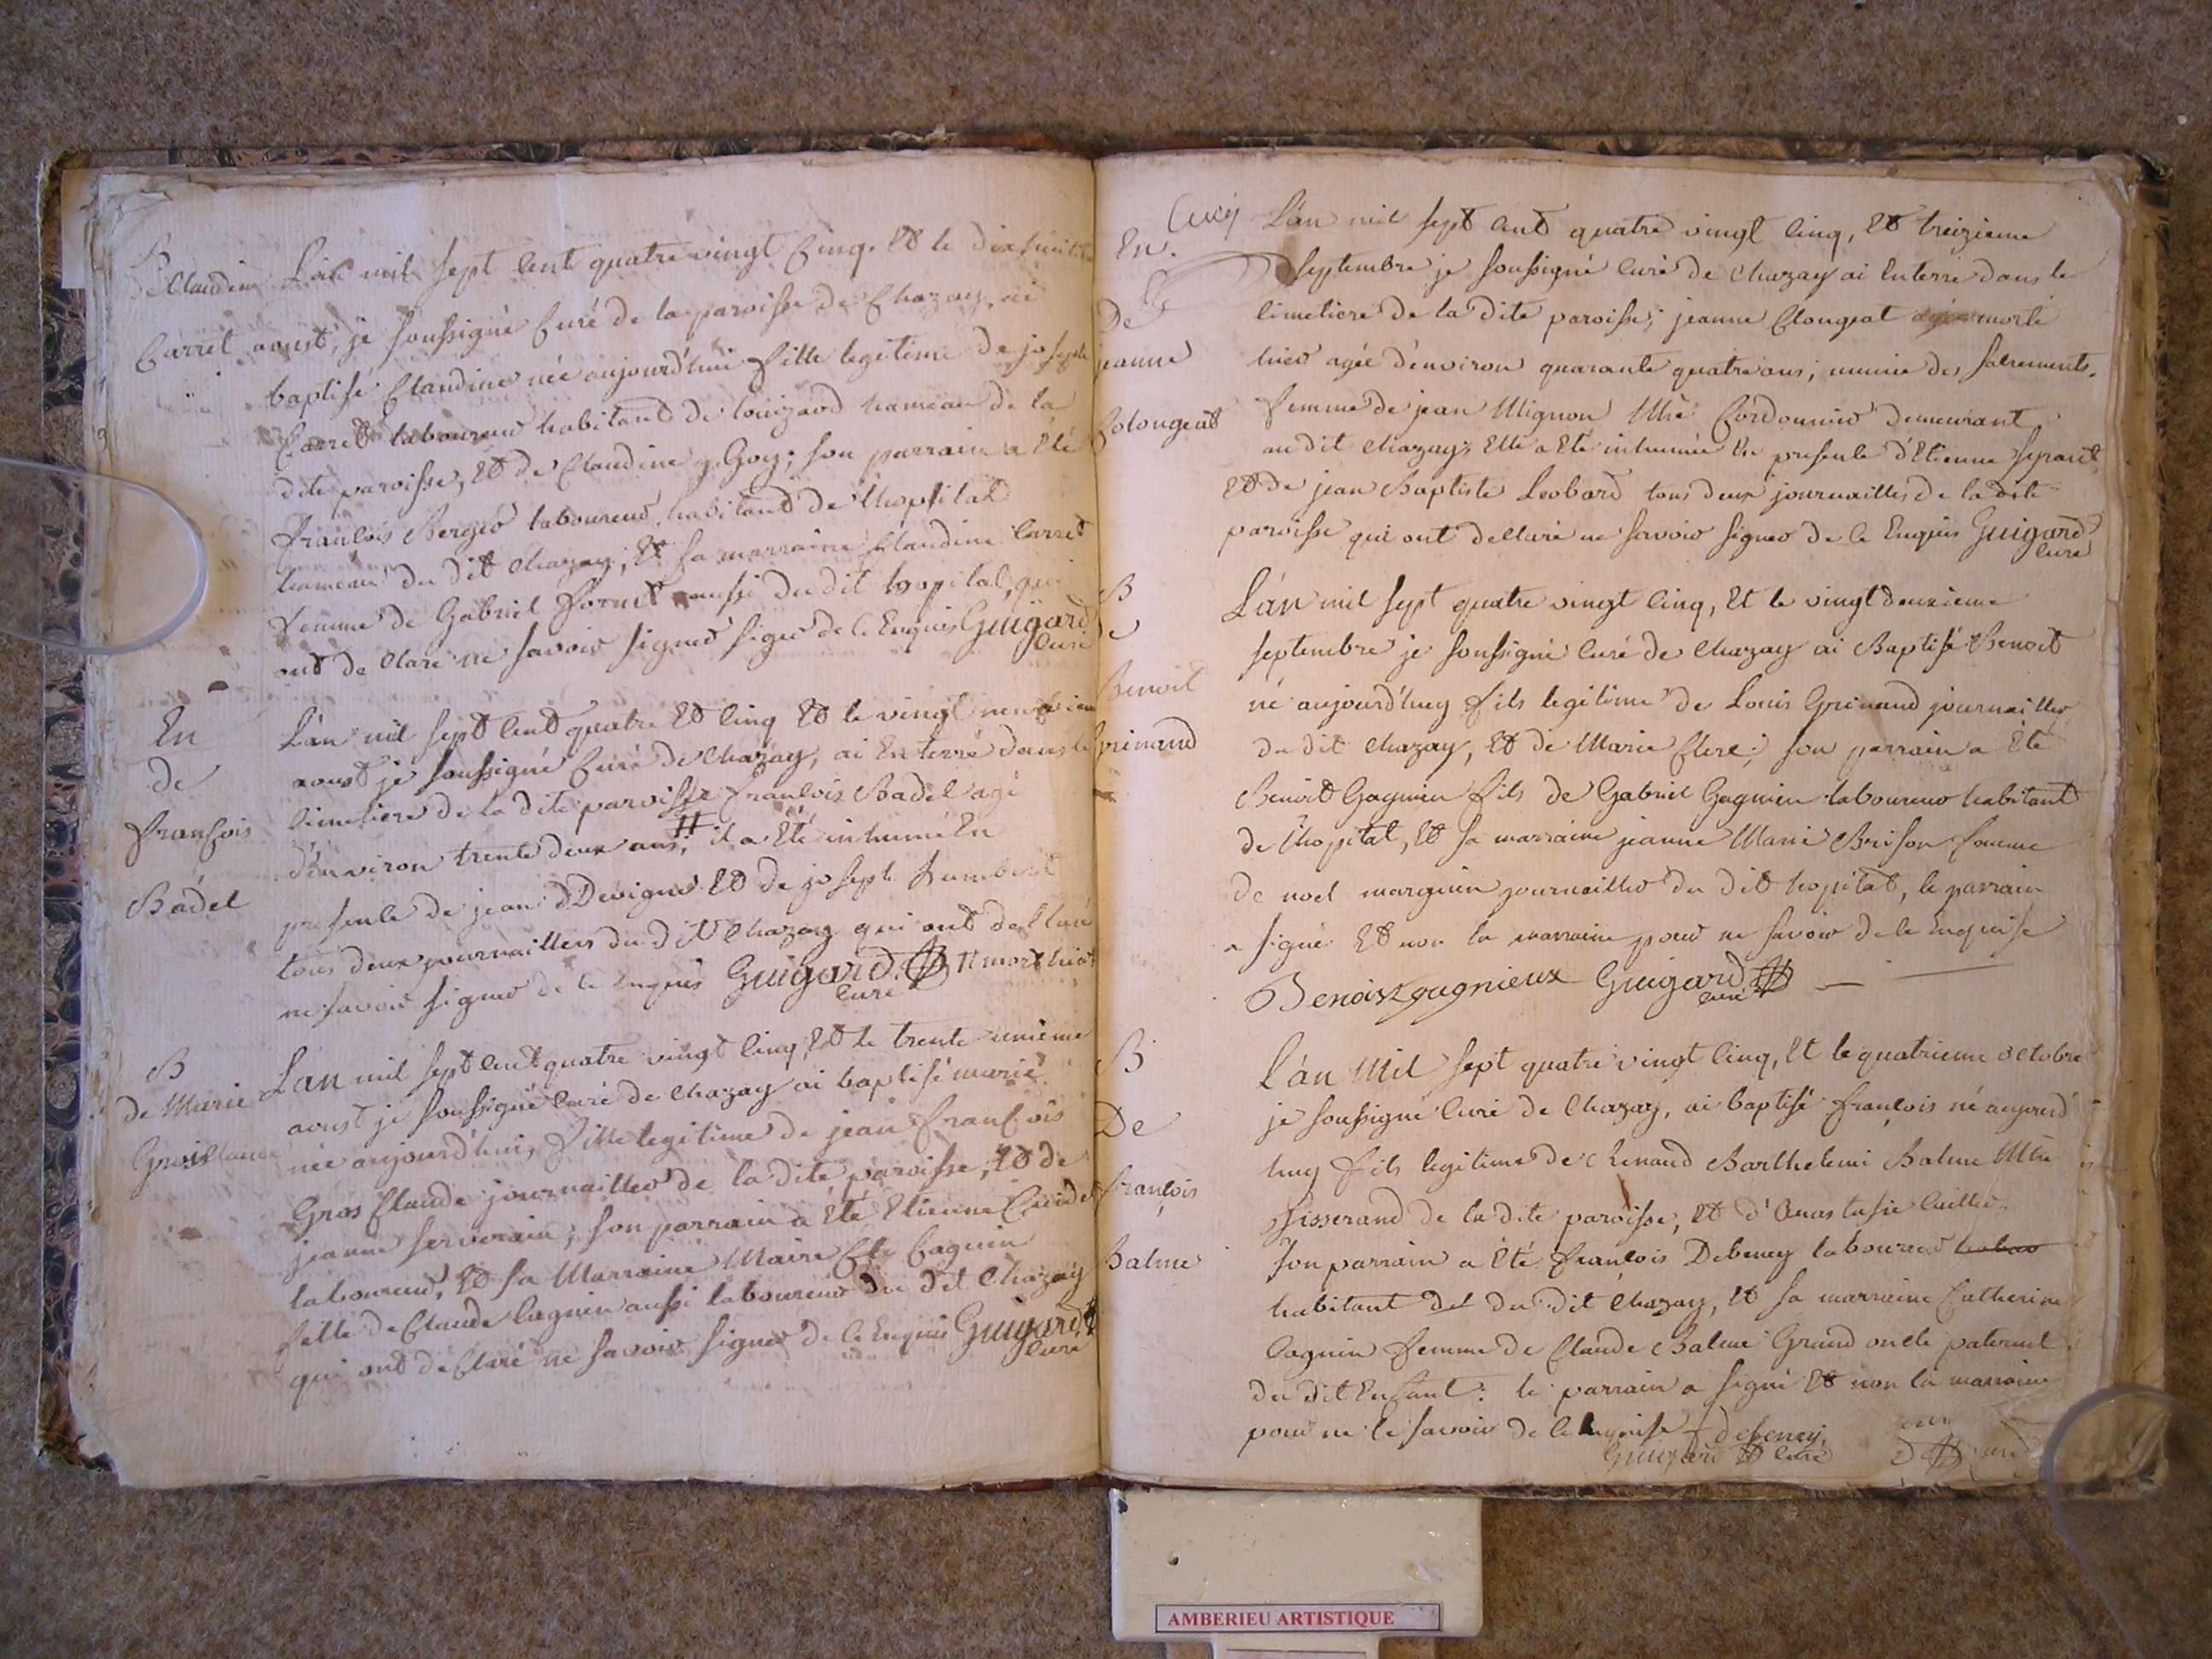 B
de Claudine
Carret
L'an mil sept cent quatre vingt cinq, et le dixhuitie
aoust, je soussigné Curé de la paroisse de Chazay, ai
baptisé Claudine née aujourd'hui fille legitime de joseph
Carret laboureur habitant de hameau de la
dite paroisse, et de Claudine Goy; son parrain a été
françois Berger laboureur, habitant de l'hopital
hameau du dit Chazay; et sa marraine Claudine Carret
femme de Gabriel fornet aussi du dit hopital, qui
ont declaré ne savoir signer signer de ce Enquis Guigard
curé
En
de
françois
Badel
L'an mil sept cent quatre et cinq et le vingt neuvieme
aoust je soussigné Curé de Chazay, ai Enterré dans le
cimetiere de la dite paroisse françois Badel agé
d'environ trente deux ans, # il a été inhumé En
presence de jean Devigne et de joseph humbert
tous deux journailliers du dit Chazay qui ont declaré
ne savoir signer de ce Enquis Guigard # mort hier
curé
B
de Marie
Gros Claude
L'an mil sept cent quatre vingt cinq, et le trente unieme
aoust je soussigné curé de Chazay ai baptisé marie
née aujourd'hui, fille legitime de jean françois
Gros Claude journaillier de la dite paroisse, et de
jeanne serverain; son parrain a été Etienne
laboureur, et sa Marraine Maire Cagnin
fille de Claude Cagnin aussi laboureur du dit Chazay
qui ont declaré ne savoir signer de ce Enquis Guigard
curé
En.
De
jeanne
Colongeat
L'an mil sept cent quatre vingt cinq, et treizieme
septembre je soussigné curé de Chazay ai Enterré dans le
cimetiere de la dite paroisse; jeanne Clougeat morte
hier agée d'environ quarante quatre ans, munie des sacrements.
femme de jean Mignon Mtre Cordonnier demeurant
au dit Chazay; Elle a été inhumée En presence d'Etienne
et de jean Baptiste Leobard tous deux journailliers de la dite
paroisse qui ont declaré ne savoir signer de ce Enquis Guigard
curé
B
de
Benoit
Grinand
L'an mil sept quatre vingt cinq, et le vingt deuxieme
septembre je soussigné curé de Chazay ai Baptisé Benoit
né aujourd'huy fils legitime de Louis Grinand journaillier
du dit Chazay, et de Marie Clerc; son parrain a été
Benoit Gagnieu fils de Gabriel Gagnieu laboureur habitant
de l'hopital, et sa marraine jeanne Marie Brison femme
de noel marguin journaillier du dit hopital, le parrain
a signé et non la marraine pour ne savoir de ce Enquise
Benoist gagnieux Guigard
curé
B
De
françois
Balme
L'an Mil sept quatre vingt cinq, et le quatrieme octobre
je soussigné Curé de Chazay, ai baptisé françois né aujourd'
huy fils legitime de Renaud Barthelemi Balme Mtre
Tisserand de la dite paroisse, et d'Anastasie Cuillier,
son parrain a été françois Debeney laboureur
habitant du dit Chazay, et sa marraine Catherine
Cagnin femme de Claude Balme Grand oncle paternel
du dit Enfant: le parrain a signé et non la marraine
pour ne le savoir de ce Enquise f debeney,
Guigard curé
AMBERIEU ARTISTIQUE